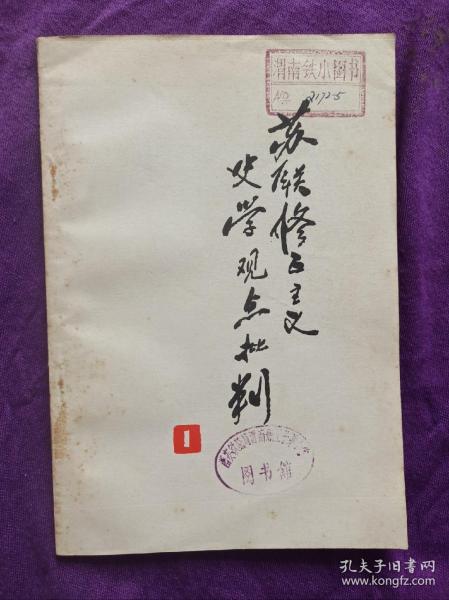 渭南铁小图书
No 3172-5
苏联修正主义
史学观点批判
1
图书馆
孔夫子旧书网
www.kongfz.com